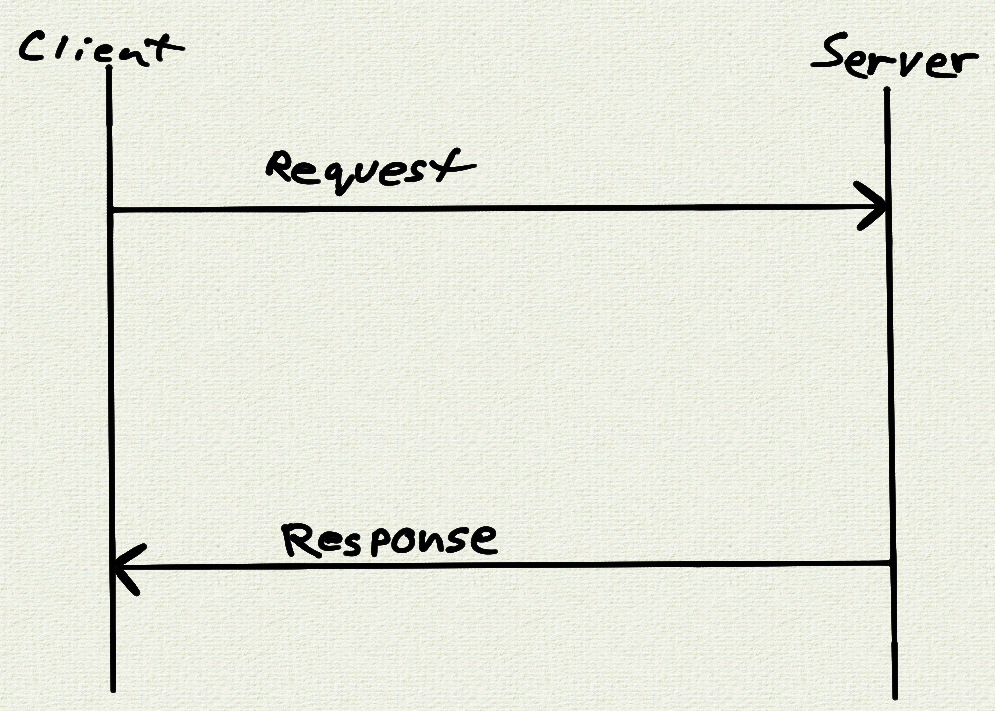 Client
Server
Request
Response